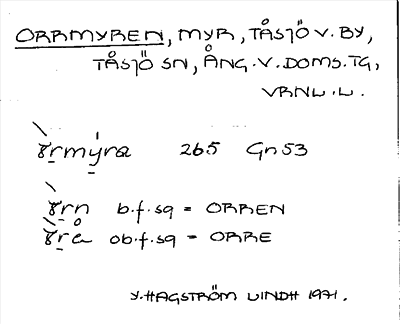 ORRMYREN, MYR, TÅSJÖ V. BY,
TÅSJÖ SN, ÅNG. V. DOMS. TG,
VRNL. L.
265 Gn53
b.f.sg = ORREN
ob.f.sg = ORRE
Y. HAGSTRÖM LINDH 1971.